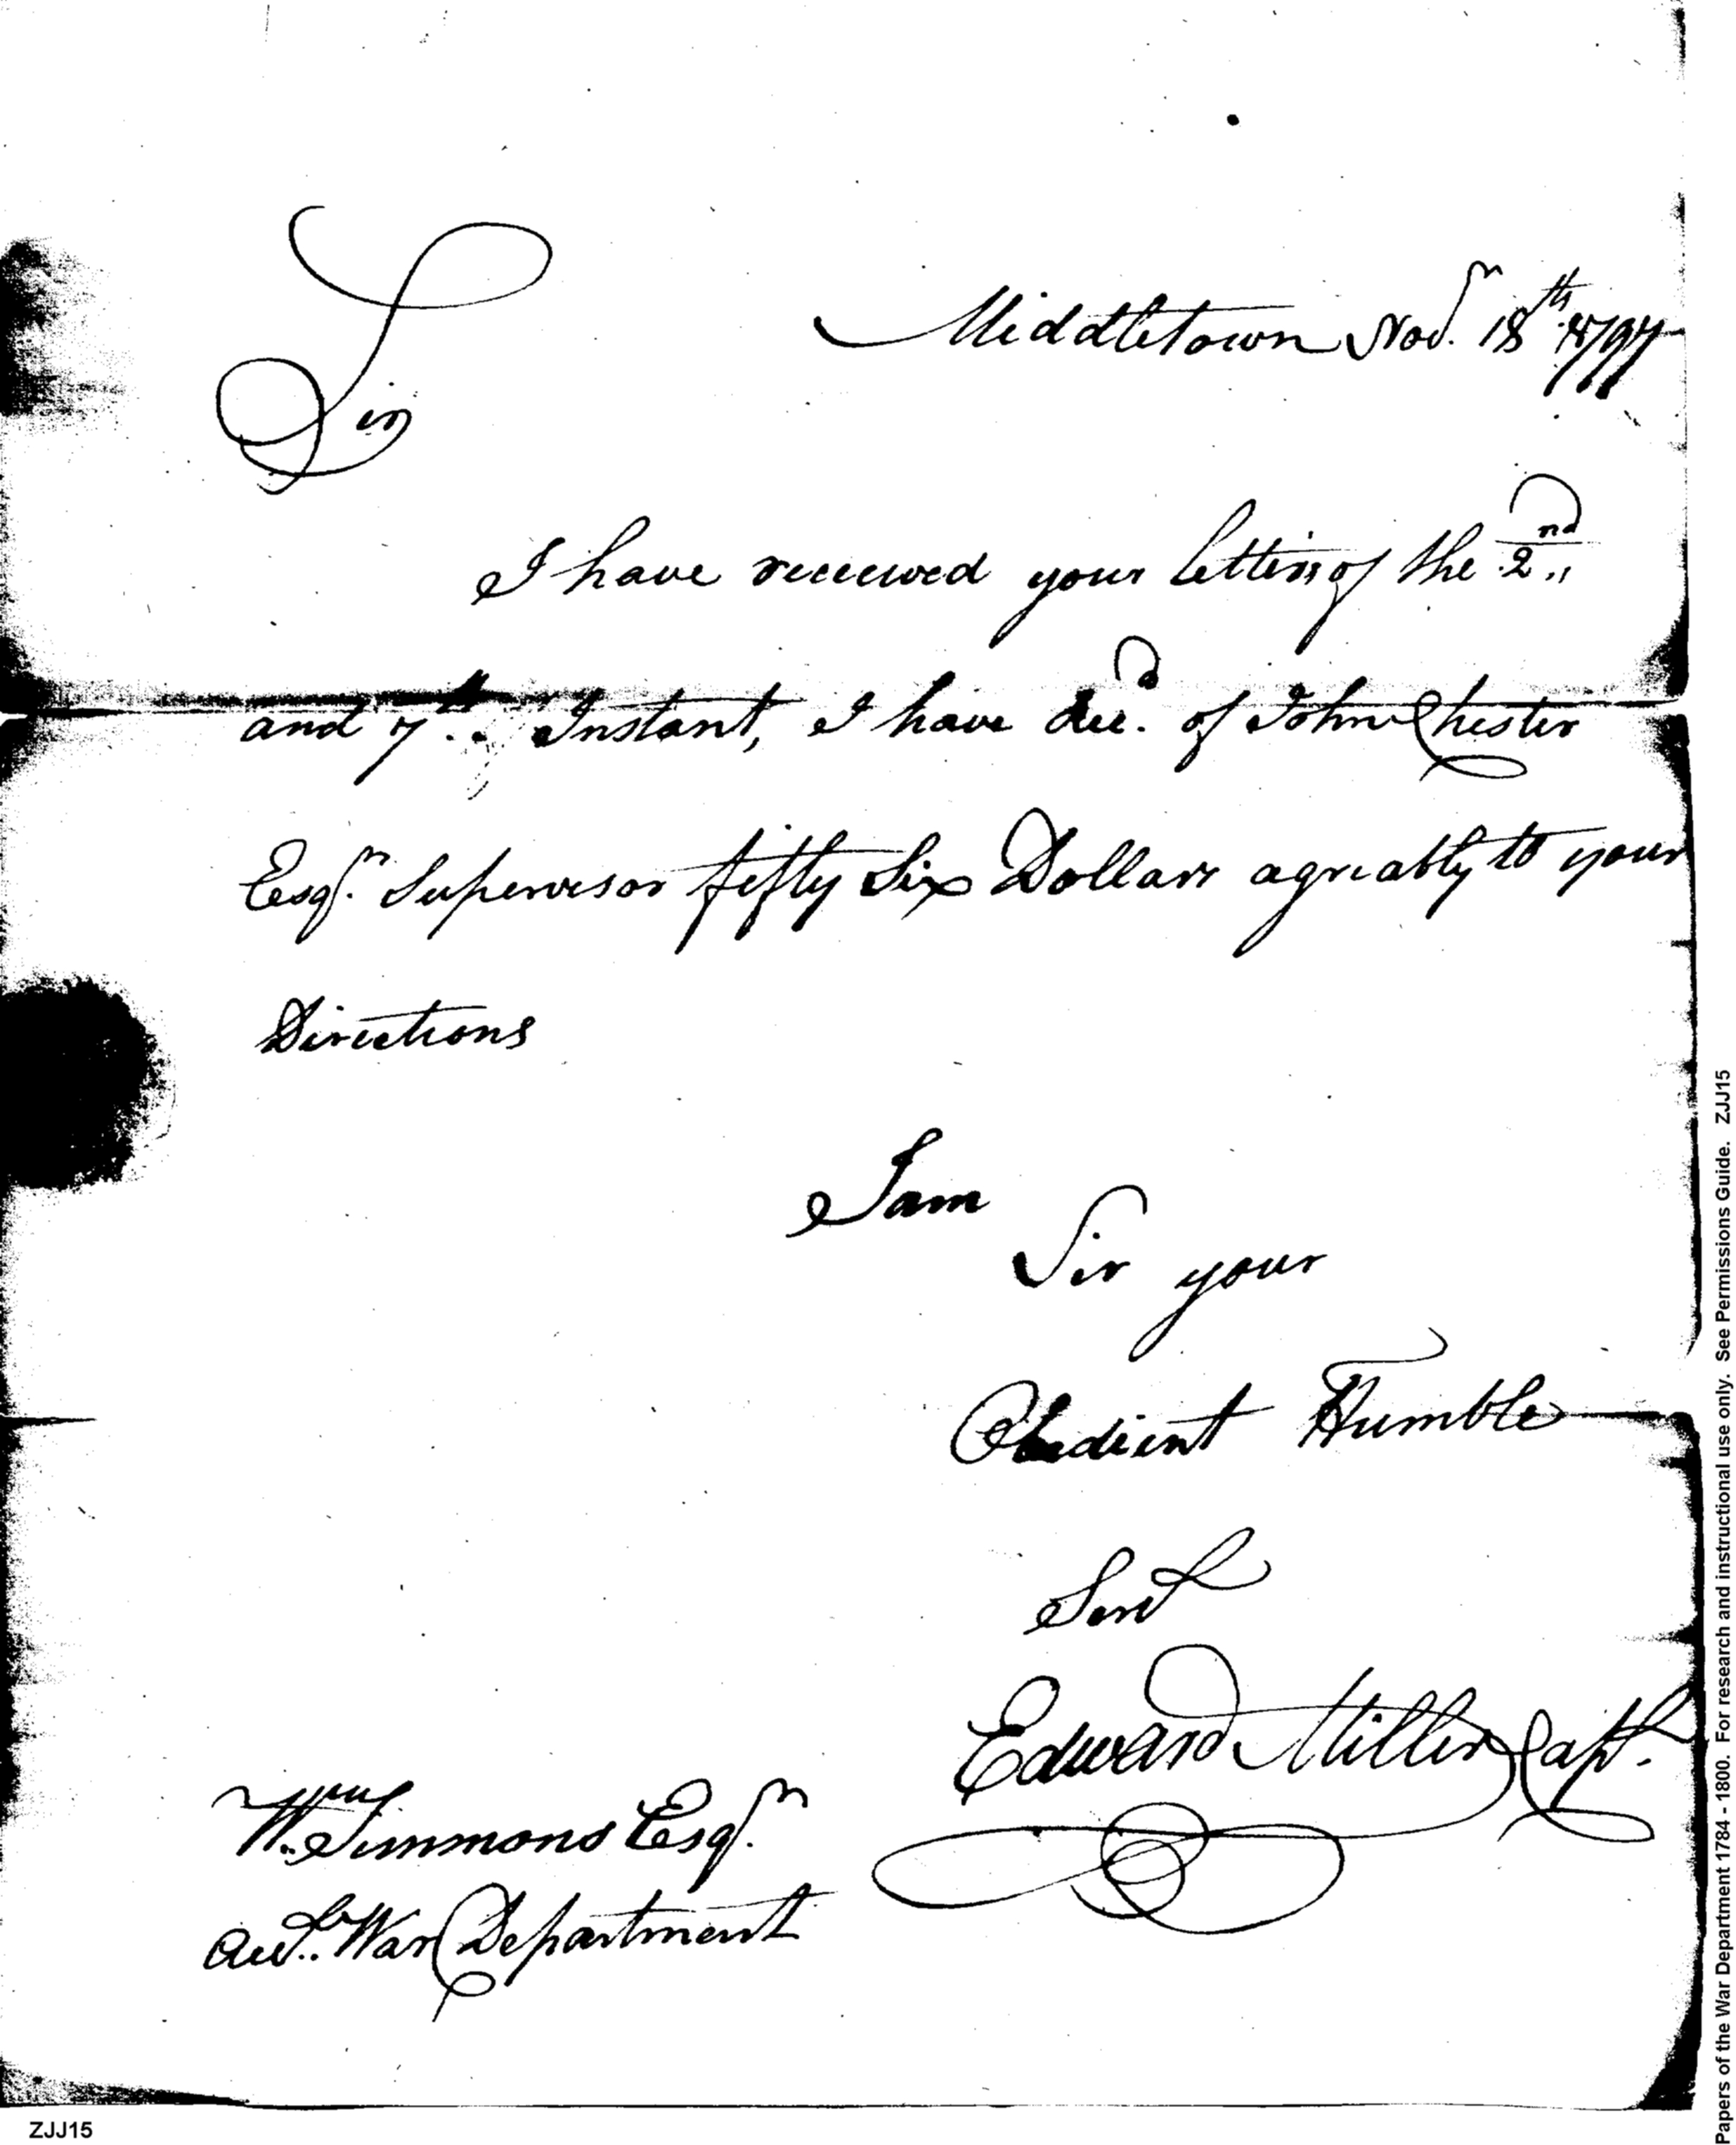 Middletown Nov.r 18th 1797
Sir
I have received your letters of the 2nd
and 7th Instant, I have Rec.d of John Chester
Esq.r Supervisor fifty Six Dollars agreably to your
Directions
I am
Sir your
Obedient Humble
Servt
Edward Miller Capt.
Wm Simmons Esq.r
Aud.r War Department
ZJJ15
Papers of the War Department 1784 - 1800. For research and instructional use only. See Permissions Guide. ZJJ15